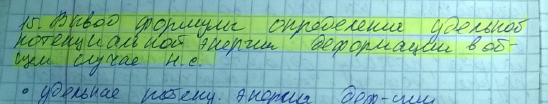 15. Вывод формулы определения удельной
потенциальной энергии деформации в об-
щем случае н.с.
• удельная потенц. энергия деф-ции